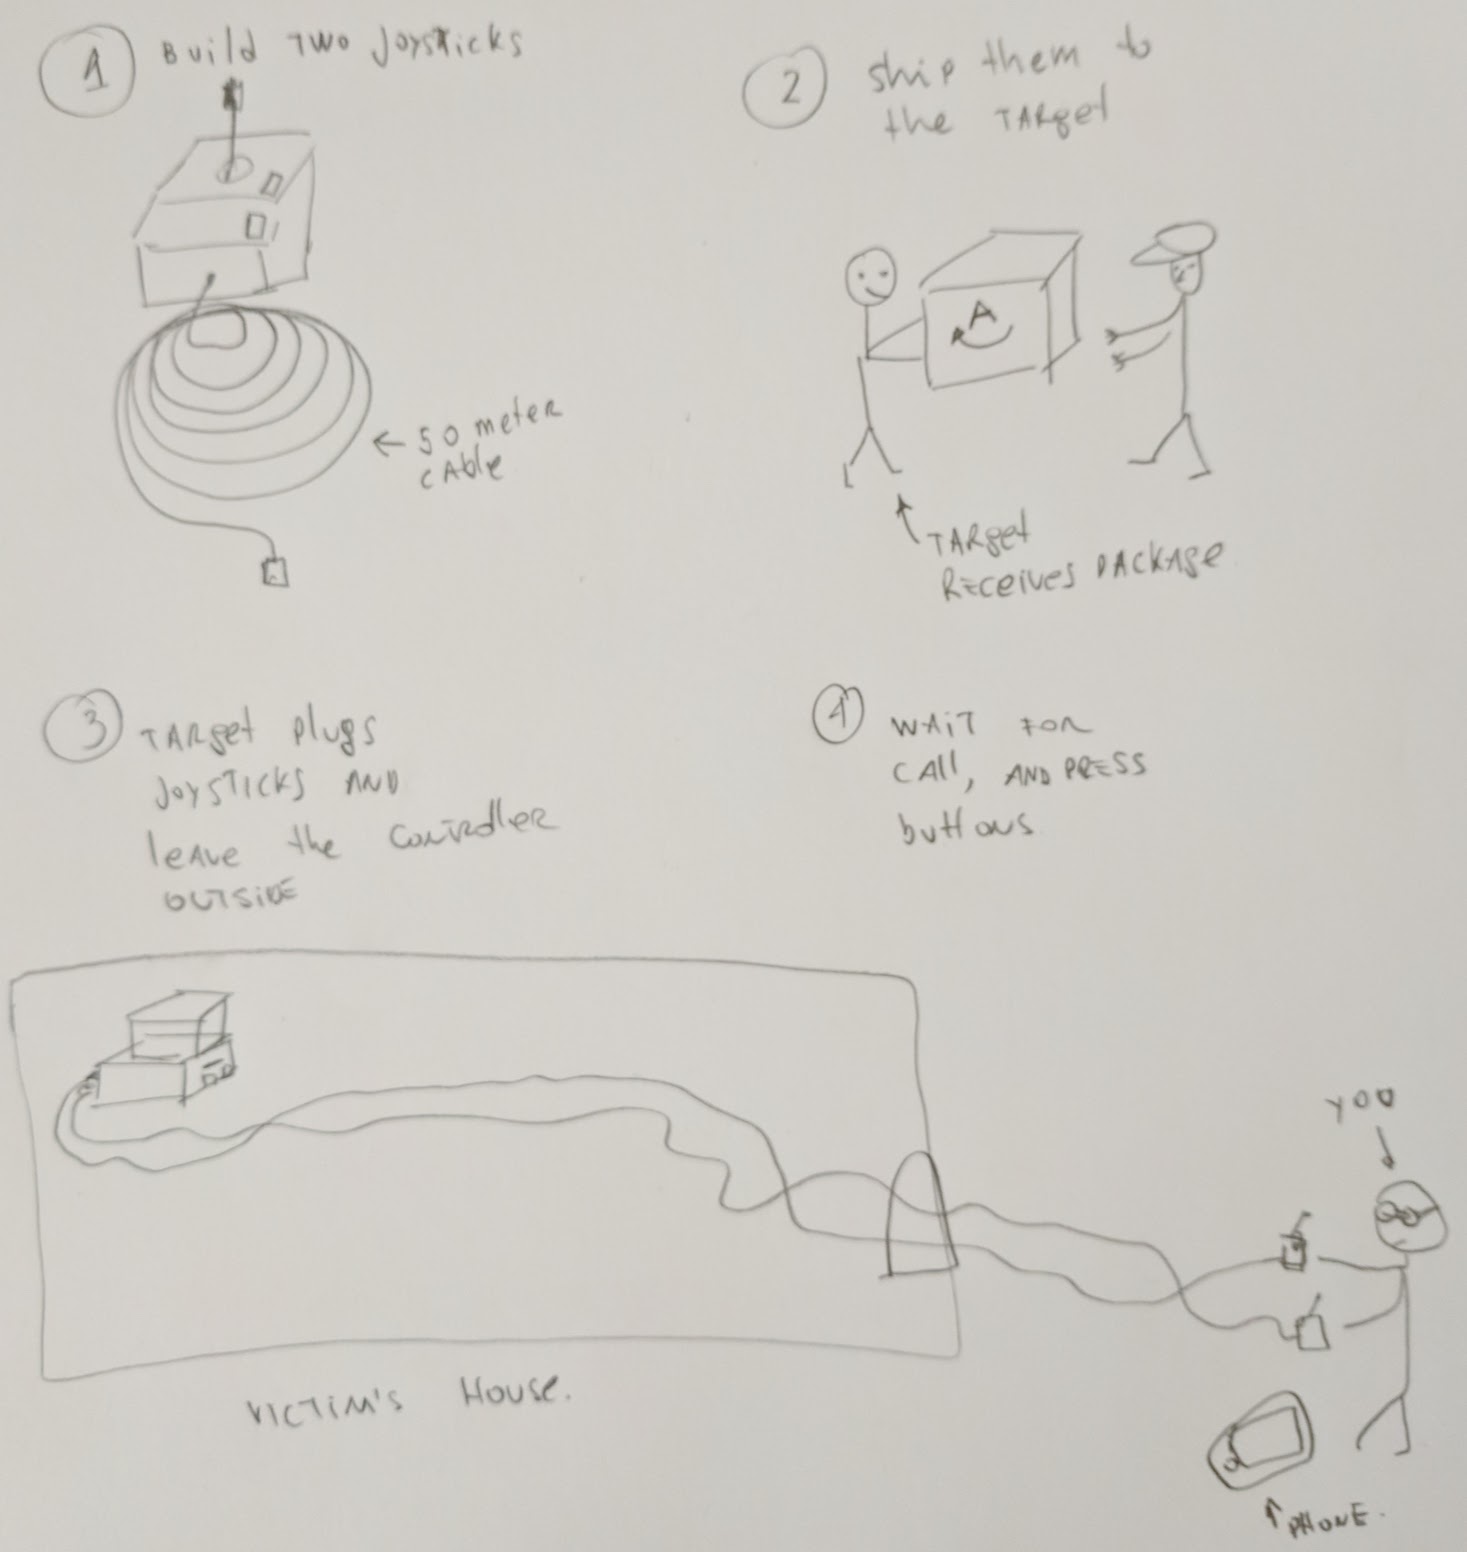 1 Build TWO Joysticks
← 50 meter
cable
2 ship them to
the TARget
A
↑ TARget
Receives PACKAge
3 TARget plugs
Joysticks AND
leave the controller
OUTSIDE
VICTIM'S House.
4 WAIT FOR
CAll, AND PRESS
buttons
YOU
↑ PHONE.